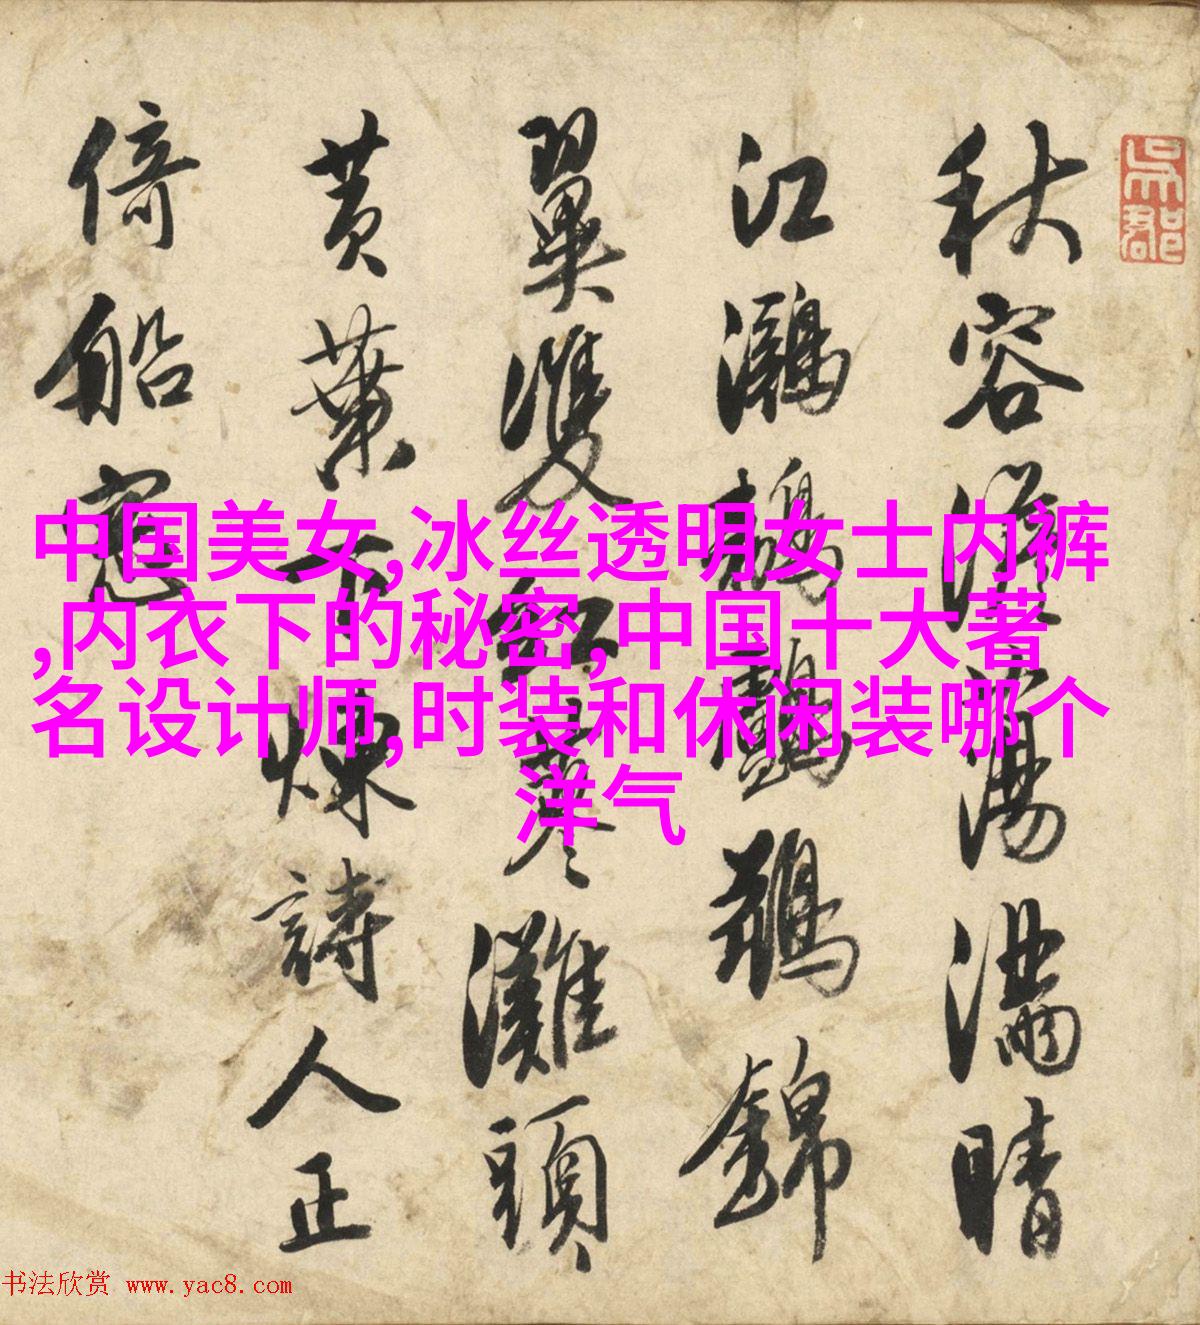 吳郡
秋容漾蕩满晴
江鸂錦
翼雙紅蓼灘頭
黄葉下煉詩人正
倚船窓
中国美女,冰丝透明女士内裤
,内衣下的秘密,中国十大著
名设计师,时装和休闲装哪个
洋气
书法欣赏 www.yac8.com